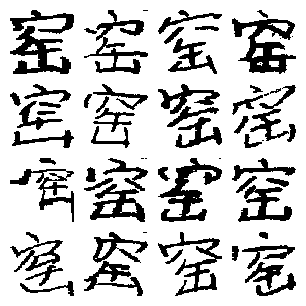 窑窑窑窑
窑窑窑窑
窑窑窑窑
窑窑窑窑